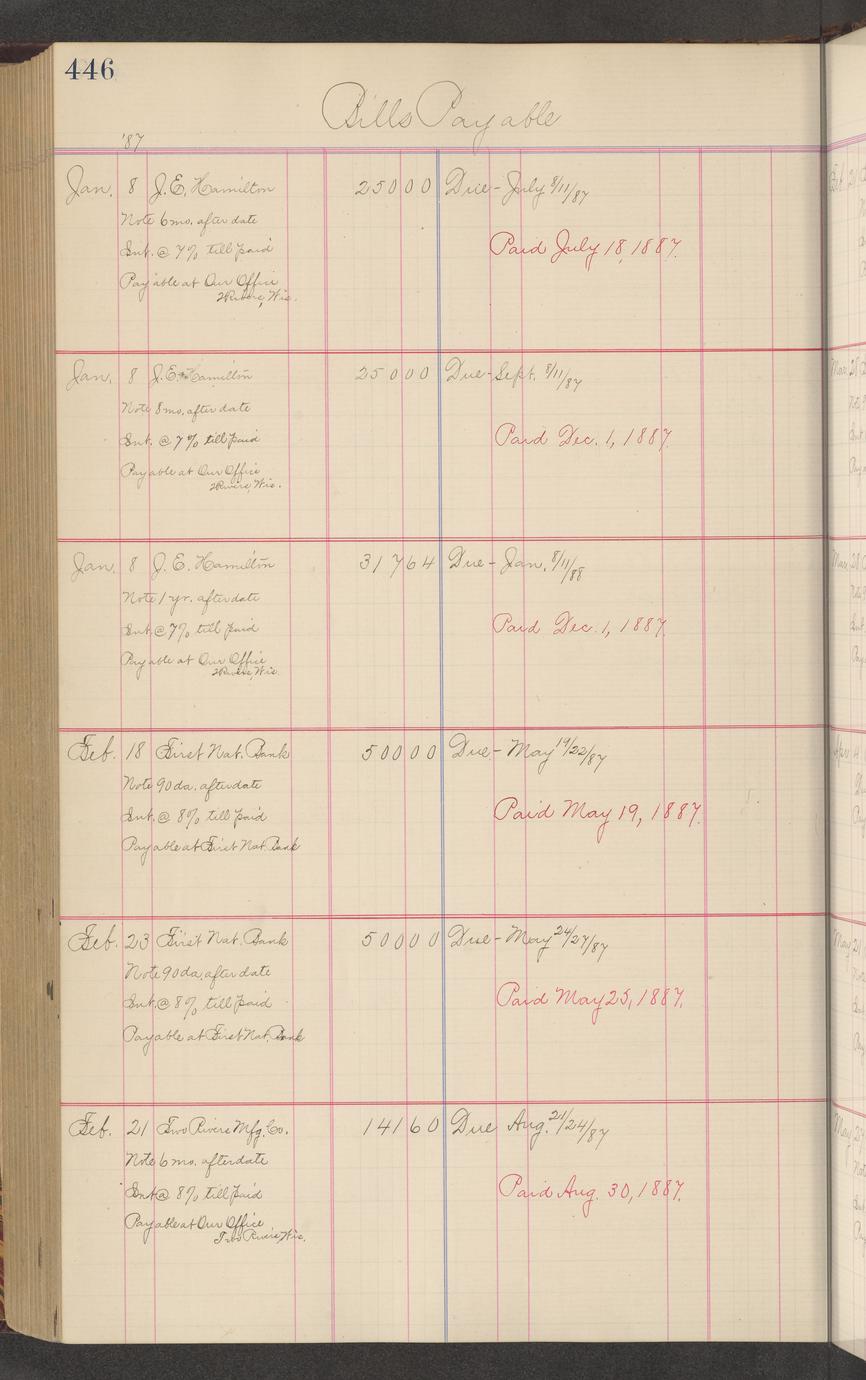 446
Bills Payable
'87
Jan. 8 J.E. Hamilton 25000 Due - July 8/11/87
Note 6 mo. after date
Int. @ 7% till paid Paid July 18, 1887.
Payable at Our Office
2Rivers, Wis.
Jan. 8 J.E. Hamilton 25000 Due - Sept. 8/11/87
Note 8 mo. after date
Int. @ 7% till paid Paid Dec. 1, 1887.
Payable at Our Office
2Rivers, Wis.
Jan. 8 J.E. Hamilton 31764 Due - Jan. 8/11/88
Note 1 yr. after date
Int. @ 7% till paid Paid Dec. 1, 1887.
Payable at Our Office
2Rivers, Wis.
Feb. 18 First Nat. Bank 50000 Due - May 19/22/87
Note 90 da. after date
Int. @ 8% till paid Paid May 19, 1887.
Payable at First Nat. Bank
Feb. 23 First Nat. Bank 50000 Due - May 24/27/87
Note 90 da. after date
Int. @ 8% till paid Paid May 25, 1887.
Payable at First Nat. Bank
Feb. 21 Two Rivers Mfg. Co. 14160 Due Aug. 21/24/87
Note 6 mo. after date
Int @ 8% till paid Paid Aug. 30, 1887.
Payable at Our Office
Two Rivers Wis.